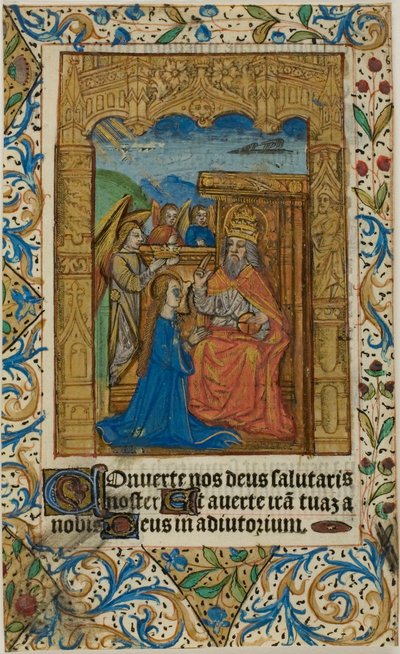 COnuerte nos deus salutaris
noster Et auerte irã tuaz a
nobis Deus in adiutorium.